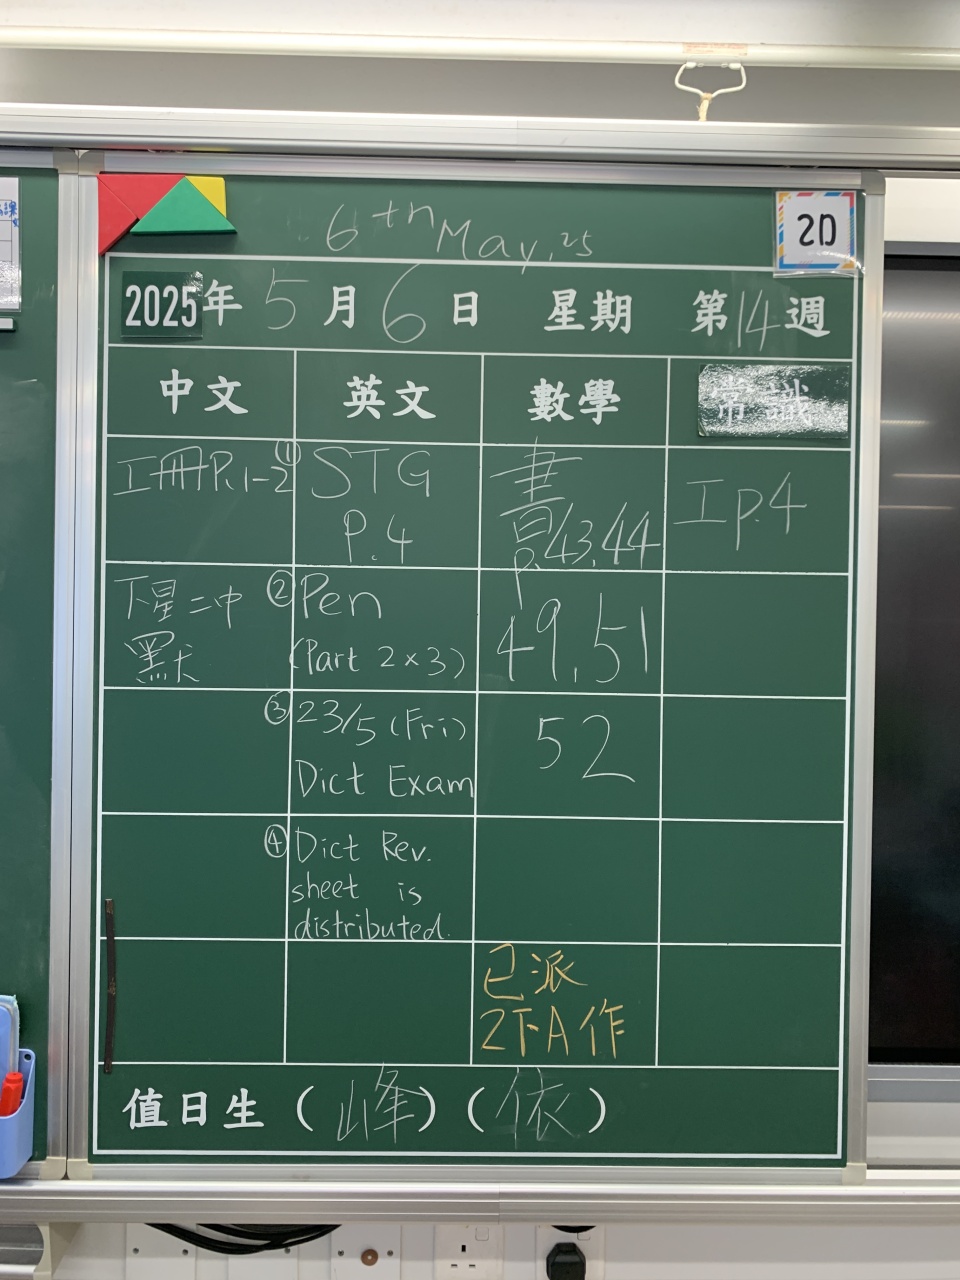 6th May, 25
2D
2025年 5月 6日 星期 第14週
中文 英文 數學 常識
工冊P.1-2
① STG
P.4
書
p.43,44
工p.4
下星二中
默
② Pen
(Part 2 x 3)
49,51
③ 23/5 (Fri)
Dict Exam
52
④ Dict Rev.
sheet is
distributed.
已派
2下A作
值日生 (峰) (依)